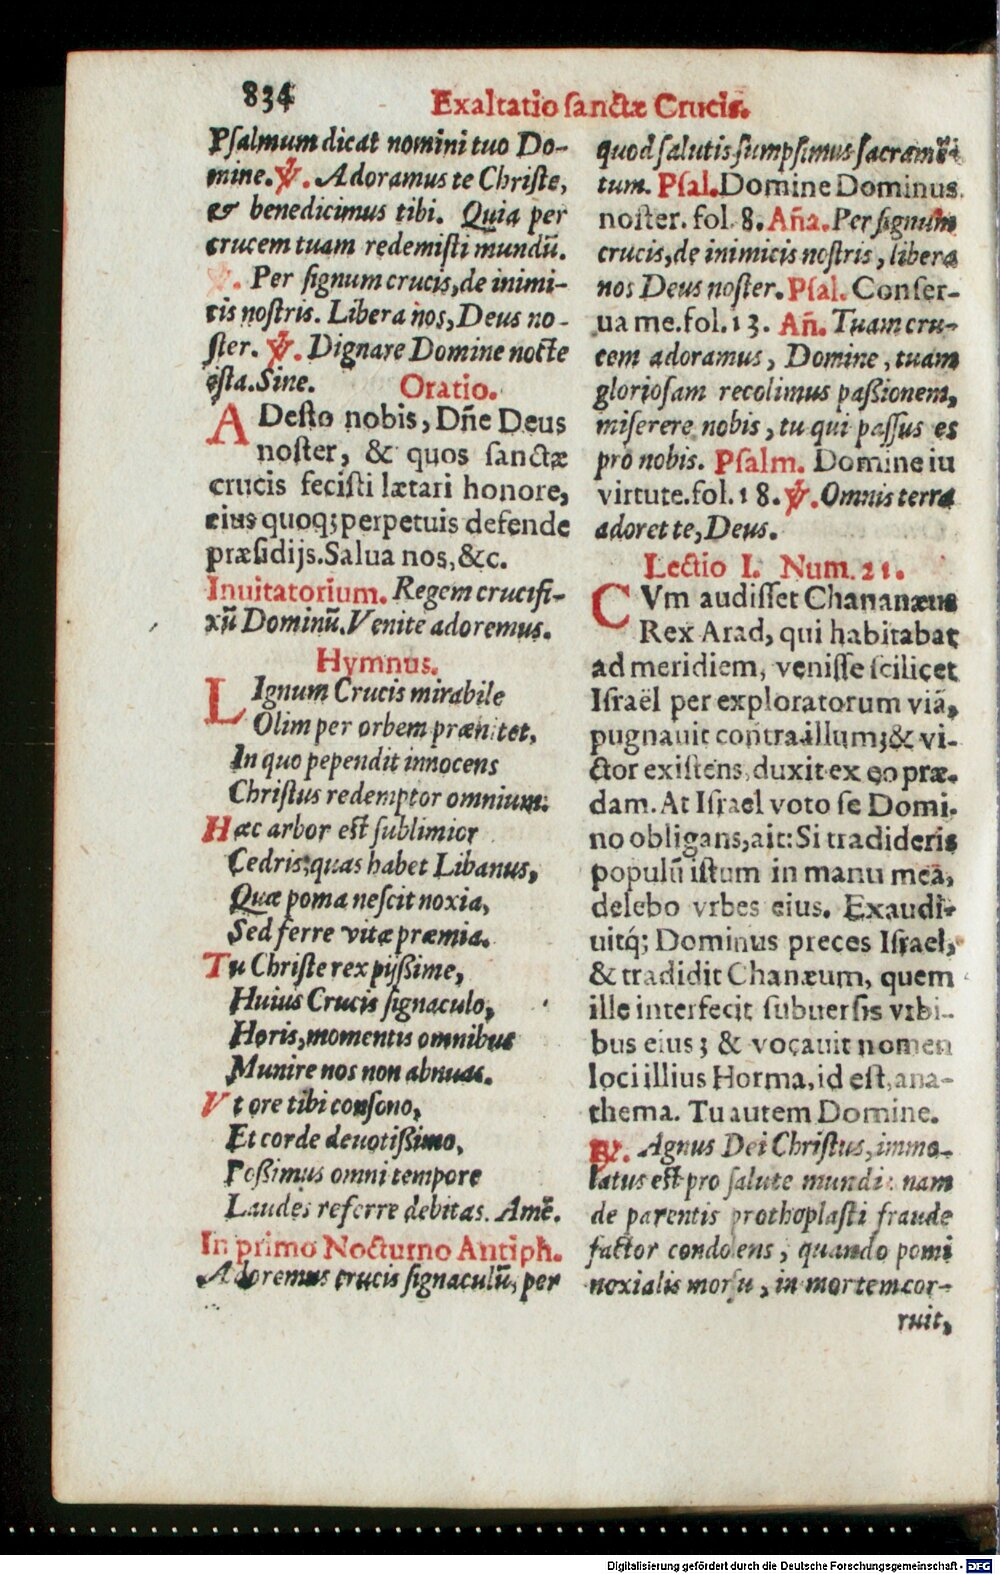 834
Exaltatio sanctæ Crucis.
Psalmum dicat nomini tuo Do-
mine. ℣. Adoramus te Christe,
& benedicimus tibi. Quia per
crucem tuam redemisti mundū.
℣. Per signum crucis, de inimi-
cis nostris. Libera nos, Deus no-
ster. ℣. Dignare Domine nocte
ista. Sine.
Oratio.
ADesto nobis, Dñe Deus
noster, & quos sanctæ
crucis fecisti lætari honore,
eius quoq; perpetuis defende
præsidijs. Salua nos, &c.
Inuitatorium. Regem crucifi-
xū Dominū. Venite adoremus.
Hymnus.
LIgnum Crucis mirabile
Olim per orbem prænitet,
In quo pependit innocens
Christus redemptor omnium.
Hæc arbor est sublimior
Cedris, quas habet Libanus,
Quæ poma nescit noxia,
Sed ferre vitæ præmia.
Tu Christe rex pijssime,
Huius Crucis signaculo,
Horis, momentis omnibus
Munire nos non abnuas.
Vt ore tibi consono,
Et corde deuotissimo,
Possimus omni tempore
Laudes referre debitas. Amē.
In primo Nocturno Antiph.
Adoremus crucis signaculū, per
quod salutis sumpsimus sacramēt-
tum. Psal. Domine Dominus
noster. fol. 8. Aña. Per signum
crucis, de inimicis nostris, libera
nos Deus noster. Psal. Conser-
ua me. fol. 13. Añ. Tuam cru-
cem adoramus, Domine, tuam
gloriosam recolimus passionem,
miserere nobis, tu qui passus es
pro nobis. Psalm. Domine iu
virtute. fol. 18. ℣. Omnis terra
adoret te, Deus.
Lectio I. Num. 21.
CVm audisset Chananæus
Rex Arad, qui habitabat
ad meridiem, venisse scilicet
Israël per exploratorum viā,
pugnauit contra illum; & vi-
ctor existens, duxit ex eo præ-
dam. At Israel voto se Domi-
no obligans, ait: Si tradideris
populū istum in manu meā,
delebo vrbes eius. Exaudi-
uitq́; Dominus preces Israel,
& tradidit Chanæum, quem
ille interfecit subuersis vrbi-
bus eius; & vocauit nomen
loci illius Horma, id est, ana-
thema. Tu autem Domine.
℟. Agnus Dei Christus, immo-
latus est pro salute mundi: nam
de parentis prothoplasti fraude
factor condolens, quando pomi
noxialis morsu, in mortem cor-
ruit,
Digitalisierung gefördert durch die Deutsche Forschungsgemeinschaft - DFG